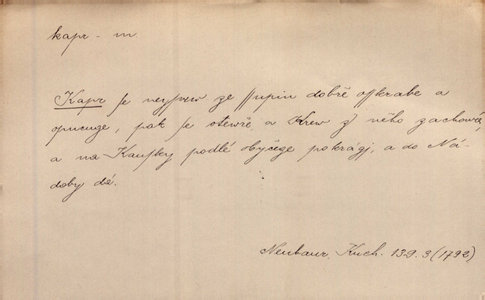 kapr - m
Kapr se neyprw ze ssupin dobře osskrabe a
opucuge, pak se otewře a Krew z něho zachowá,
a na Kausky podlé obyčege pokrágj, a do Ná-
doby dá.
Neubaur, Kuch. 139. 3 (1792)